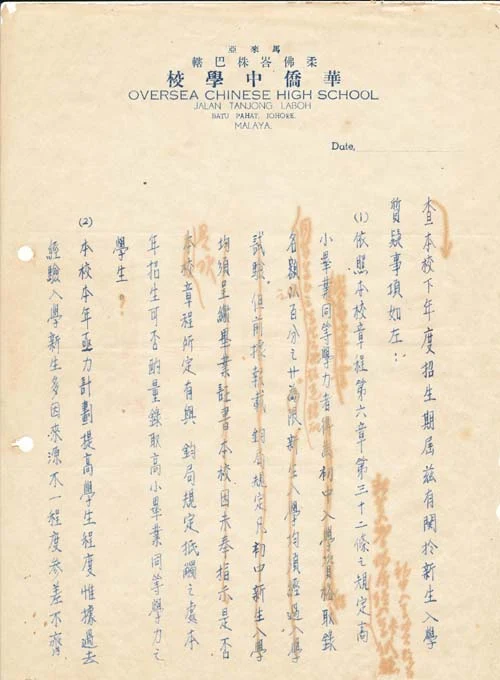 馬來亞
柔佛峇株巴轄
華僑中學校
OVERSEA CHINESE HIGH SCHOOL
JALAN TANJONG LABOH
BATU PAHAT, JOHORE.
MALAYA.
Date,
查本校下年度招生期屆茲有關於新生入學
質疑事項如左：
(1) 依照本校章程第六章第三十二條之規定高
小畢業同等學力者得為初中入學資格取錄
名額以百分之廿為限新生入學均須經過入學
試驗。但前據報載 鈞局規定凡初中新生入學
均須呈繳畢業証書本校因未奉指示是否
本校章程所定有與 鈞局規定抵觸之處本
年招生可否酌量錄取高小畢業同等學力之
學生？
(2) 本校本年亟力計劃提高學生程度惟據過去
經驗入學新生多因來源不一程度參差不齊